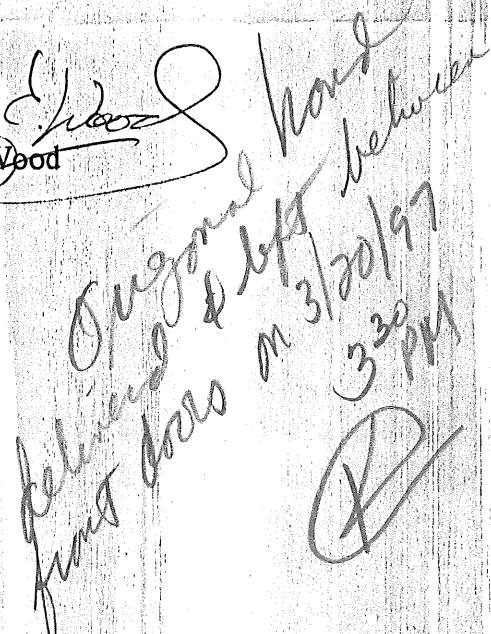 E. Wood
Wood
Original hand
delivered & left between
front doors on 3/20/97
3:30 PM
R